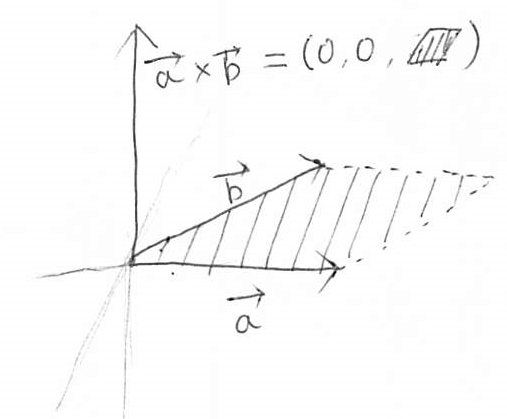 a⃗ × b⃗ = (0, 0, ▱)
b⃗
a⃗